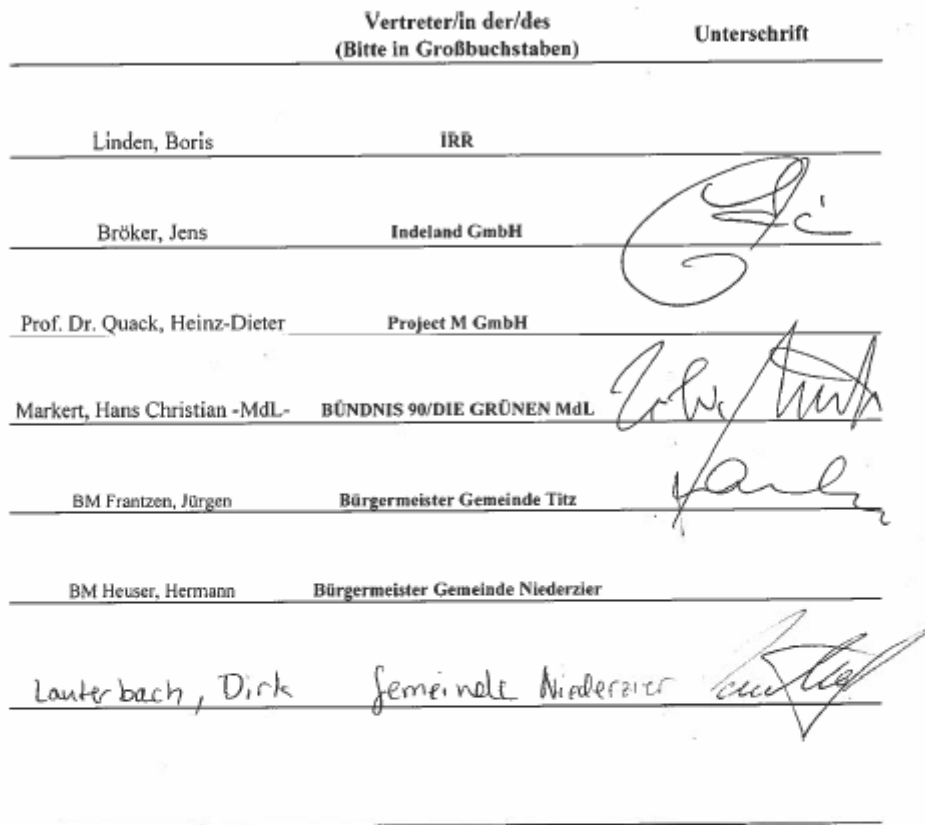 Vertreter/in der/des
(Bitte in Großbuchstaben) Unterschrift
Linden, Boris IRR
Bröker, Jens Indeland GmbH
Prof. Dr. Quack, Heinz-Dieter Project M GmbH
Markert, Hans Christian -MdL- BÜNDNIS 90/DIE GRÜNEN MdL
BM Frantzen, Jürgen Bürgermeister Gemeinde Titz
BM Heuser, Hermann Bürgermeister Gemeinde Niederzier
Lauterbach, Dirk Gemeinde Niederzier